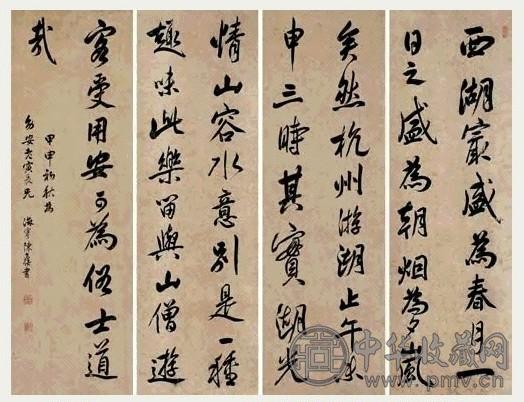 西湖㝡盛為春月一
日之盛為朝烟為夕嵐
矣然杭州游湖止午未
申三時其實湖光
情山容水意別是一種
趣味此樂留與山僧遊
客受用安可為俗士道
哉
甲申初秋為
安老寅長兄 海寧陳書
中华收藏网
www.pmv.cn